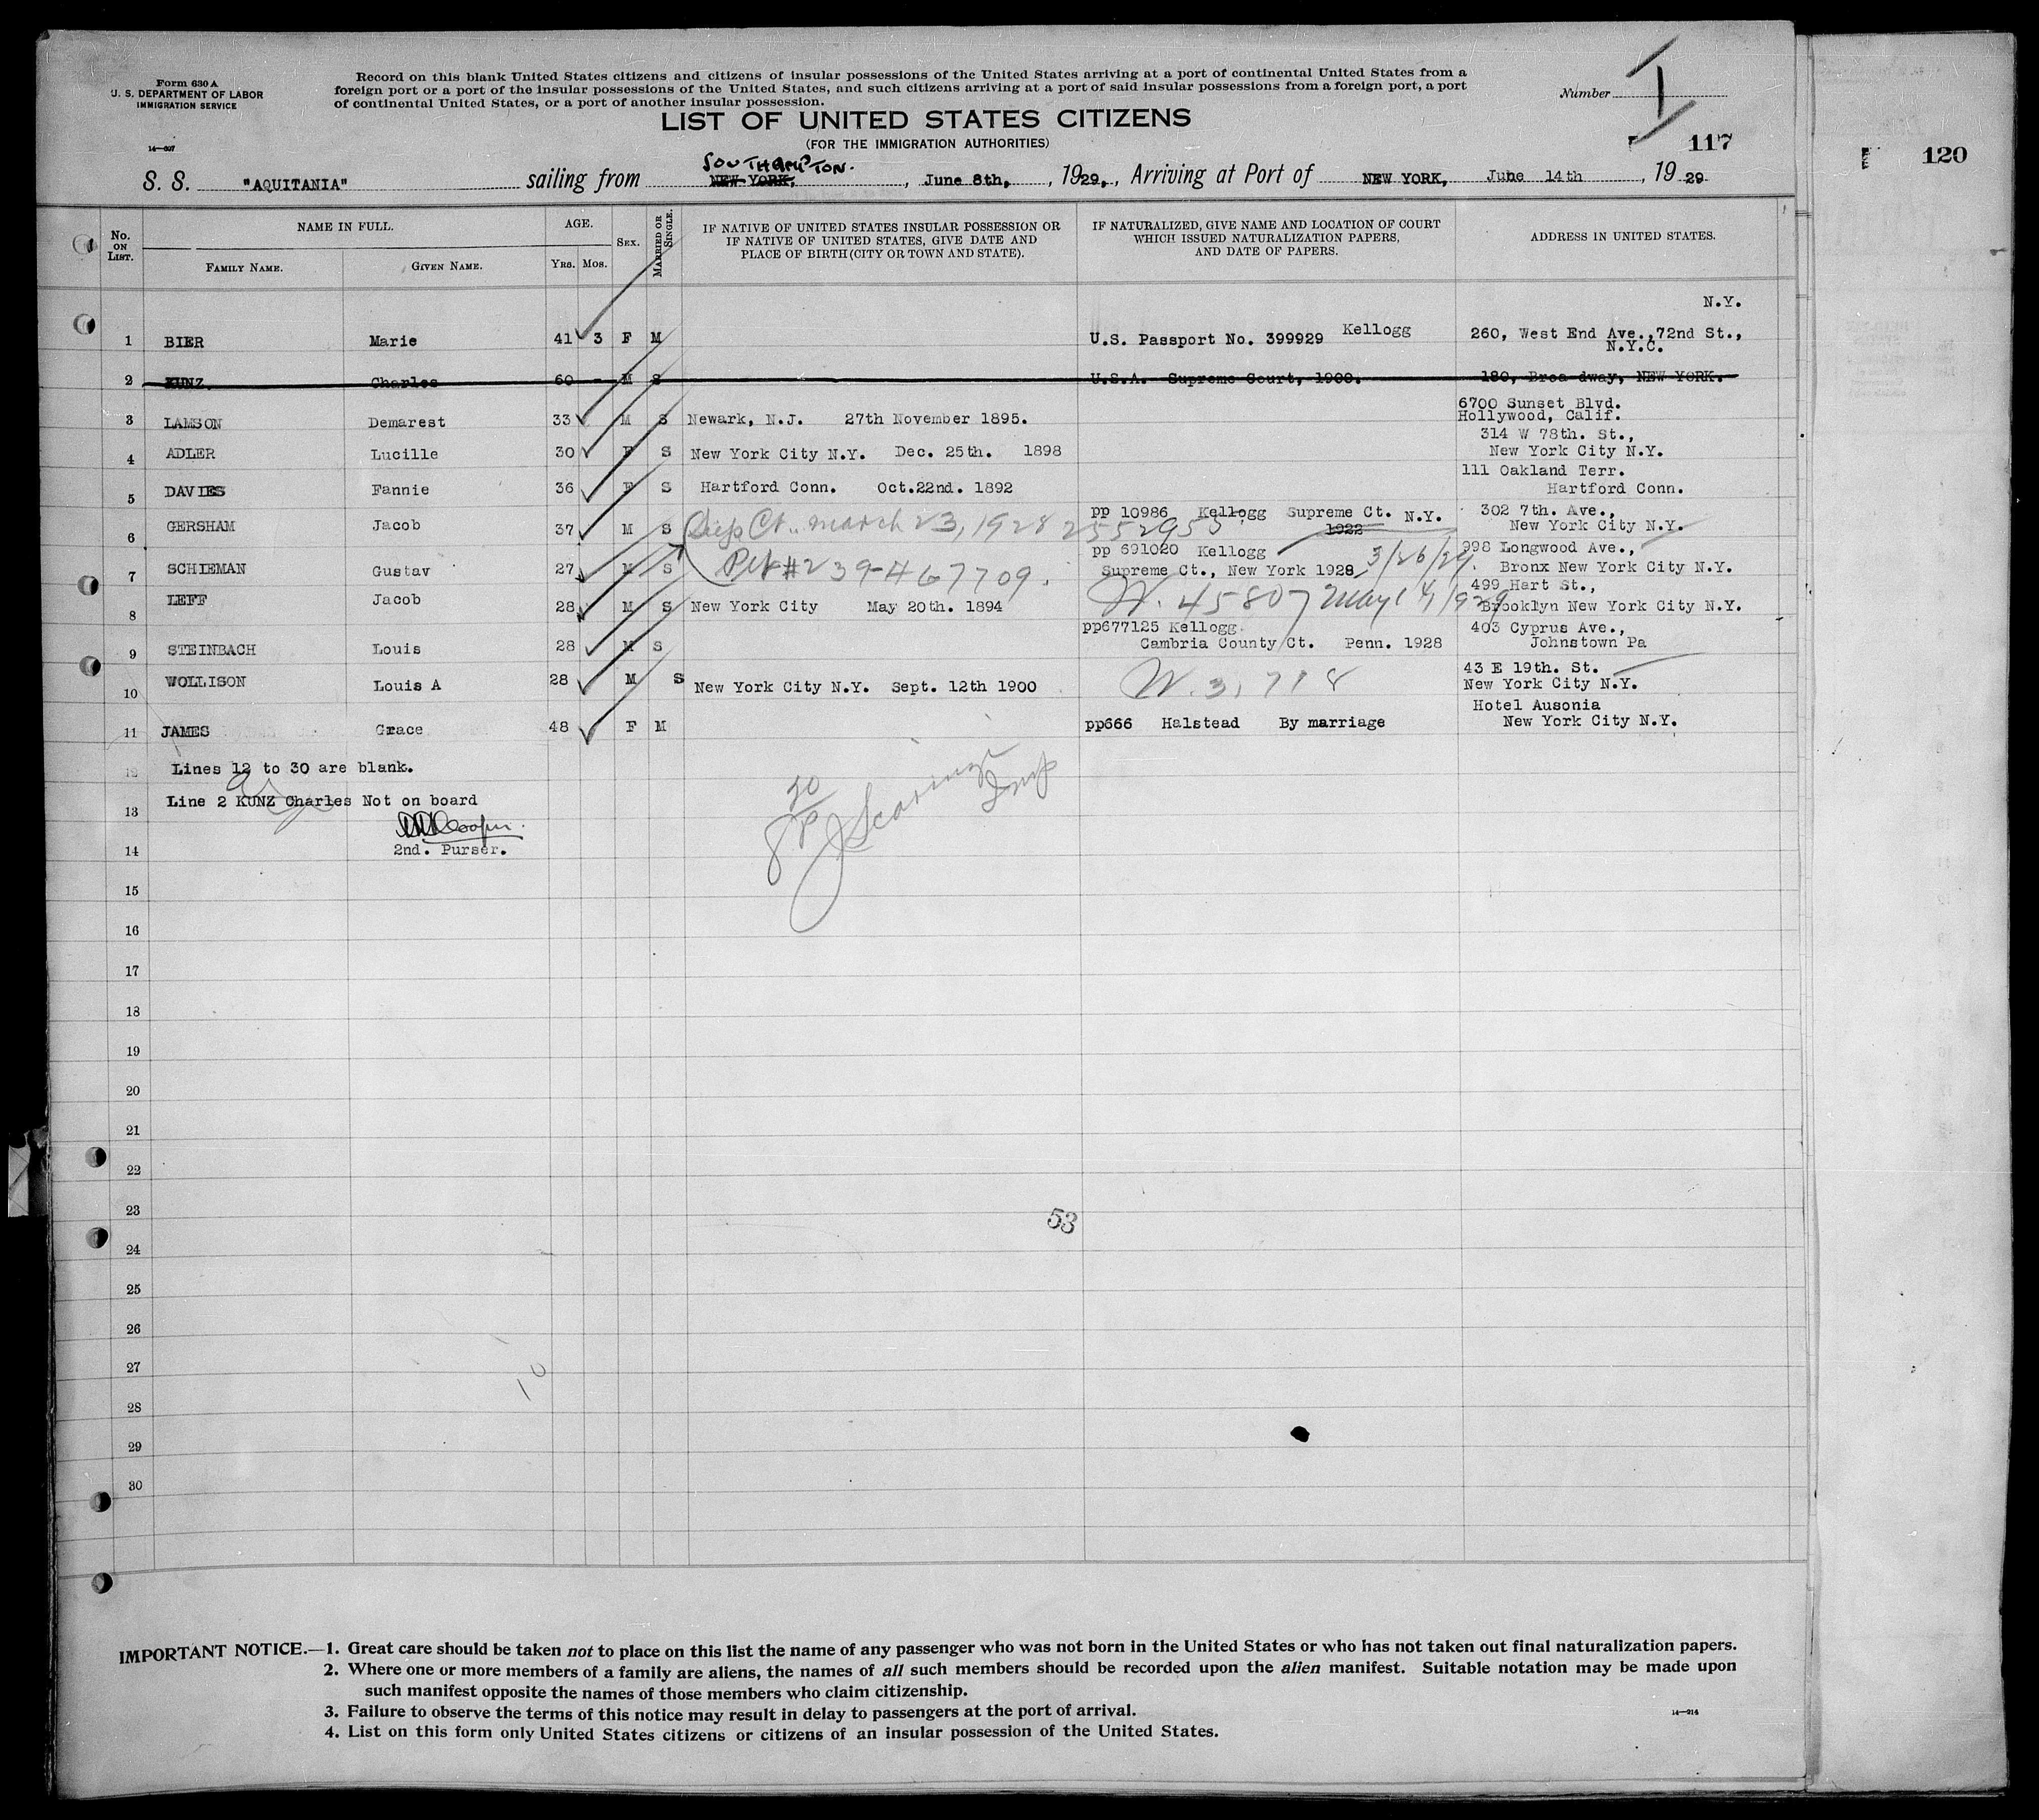 Form 630 A
U. S. DEPARTMENT OF LABOR
IMMIGRATION SERVICE
14—607
Record on this blank United States citizens and citizens of insular possessions of the United States arriving at a port of continental United States from a
foreign port or a port of the insular possessions of the United States, and such citizens arriving at a port of said insular possessions from a foreign port, a port
of continental United States, or a port of another insular possession.
Number I
LIST OF UNITED STATES CITIZENS
(FOR THE IMMIGRATION AUTHORITIES)
117
120
SOUTHAMPTON.
S. S. "AQUITANIA" sailing from NEW YORK, , June 8th, , 1929, , Arriving at Port of NEW YORK, June 14th , 19 29
No. ON LIST. NAME IN FULL. AGE. SEX. MARRIED OR SINGLE. IF NATIVE OF UNITED STATES INSULAR POSSESSION OR IF NATIVE OF UNITED STATES, GIVE DATE AND PLACE OF BIRTH (CITY OR TOWN AND STATE). IF NATURALIZED, GIVE NAME AND LOCATION OF COURT WHICH ISSUED NATURALIZATION PAPERS, AND DATE OF PAPERS. ADDRESS IN UNITED STATES.
FAMILY NAME. GIVEN NAME. YRS. MOS.
N.Y.
1 BIER Marie 41 3 F M U.S. Passport No. 399929 Kellogg 260, West End Ave.,72nd St.,
N.Y.C.
2 KUNZ Charles 60 - M S U.S.A. Supreme Court, 1900. 180, Broa dway, NEW YORK.
6700 Sunset Blvd.
3 LAMSON Demarest 33 M S Newark, N.J. 27th November 1895. Hollywood, Calif.
314 W 78th. St.,
4 ADLER Lucille 30 F S New York City N.Y. Dec. 25th. 1898 New York City N.Y.
111 Oakland Terr.
5 DAVIES Fannie 36 F S Hartford Conn. Oct.22nd. 1892 Hartford Conn.
pp 10986 Kellogg Supreme Ct. N.Y. 302 7th. Ave.,
6 GERSHAM Jacob 37 M S Sup Ct. March 23, 1928 2552953 1922 New York City N.Y.
pp 691020 Kellogg 3/26/29. 998 Longwood Ave.,
7 SCHIEMAN Gustav 27 M S Pet # 239-467709. Supreme Ct., New York 1928 Bronx New York City N.Y.
499 Hart St.,
8 LEFF Jacob 28 M S New York City May 20th. 1894 W. 45807 May 14 1929 Brooklyn New York City N.Y.
pp677125 Kellogg 403 Cyprus Ave.,
9 STEINBACH Louis 28 M S Cambria County Ct. Penn. 1928 Johnstown Pa
43 E 19th. St.
10 WOLLISON Louis A 28 M S New York City N.Y. Sept. 12th 1900 W. 3,718 New York City N.Y.
Hotel Ausonia
11 JAMES Grace 48 F M pp666 Halstead By marriage New York City N.Y.
12 Lines 12 to 30 are blank.
13 Line 2 KUNZ Charles Not on board
14 2nd. Purser.
15
16
17
18
19
20
21
22
23
53
24
25
26
27
10
28
29
30
IMPORTANT NOTICE.—1. Great care should be taken not to place on this list the name of any passenger who was not born in the United States or who has not taken out final naturalization papers.
2. Where one or more members of a family are aliens, the names of all such members should be recorded upon the alien manifest. Suitable notation may be made upon
such manifest opposite the names of those members who claim citizenship.
3. Failure to observe the terms of this notice may result in delay to passengers at the port of arrival.
4. List on this form only United States citizens or citizens of an insular possession of the United States.
14—214